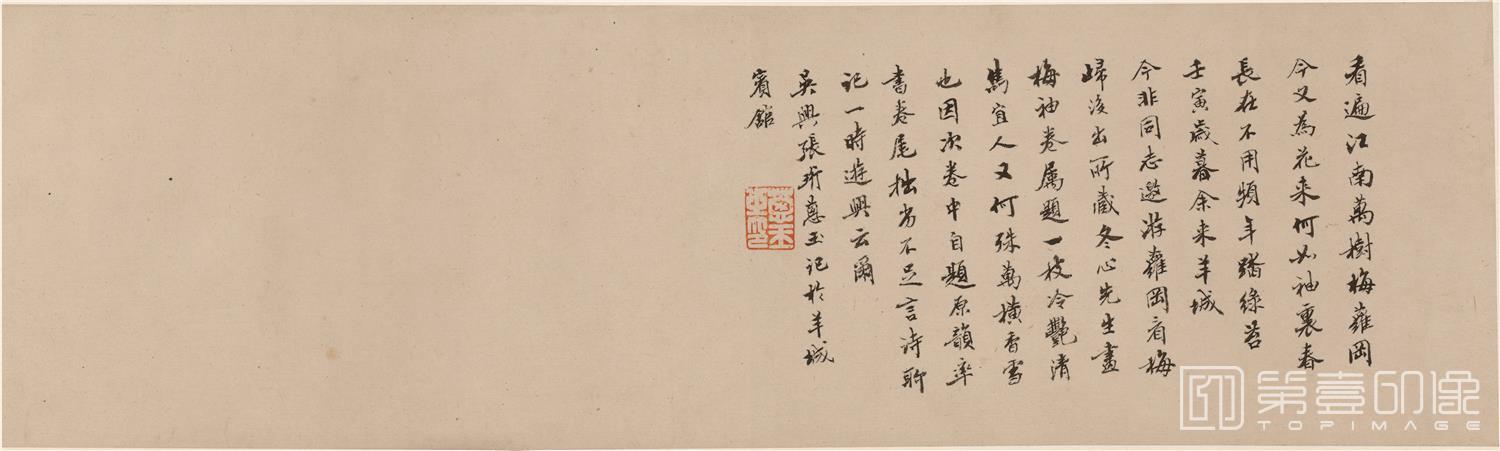 看遍江南萬樹梅蘿岡
今又為花来何如袖裏春
長在不用頻年踏綠苔
壬寅歲暮余来羊城
今非同志邀游蘿岡看梅
歸後出所藏冬心先生畫
梅袖卷属題一枝冷艷清
雋宜人又何殊萬横香雪
也因次卷中自題原韻率
書卷尾拙劣不足言诗聊
记一時遊興云爾
吴興張珩蔥玉记於羊城
賓館
第壹印像
TOPIMAGE